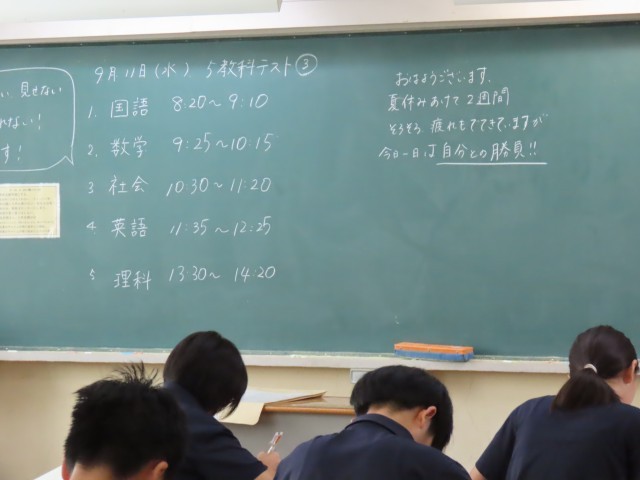 い、見せない
れない!
す!
9月11日(水) 5教科テスト③
1. 国語 8:20~9:10
2. 数学 9:25~10:15
3 社会 10:30~11:20
4 英語 11:35~12:25
5 理科 13:30~14:20
おはようございます。
夏休みあけて2週間
そろそろ疲れもでてきていますが
今日一日は自分との勝負!!